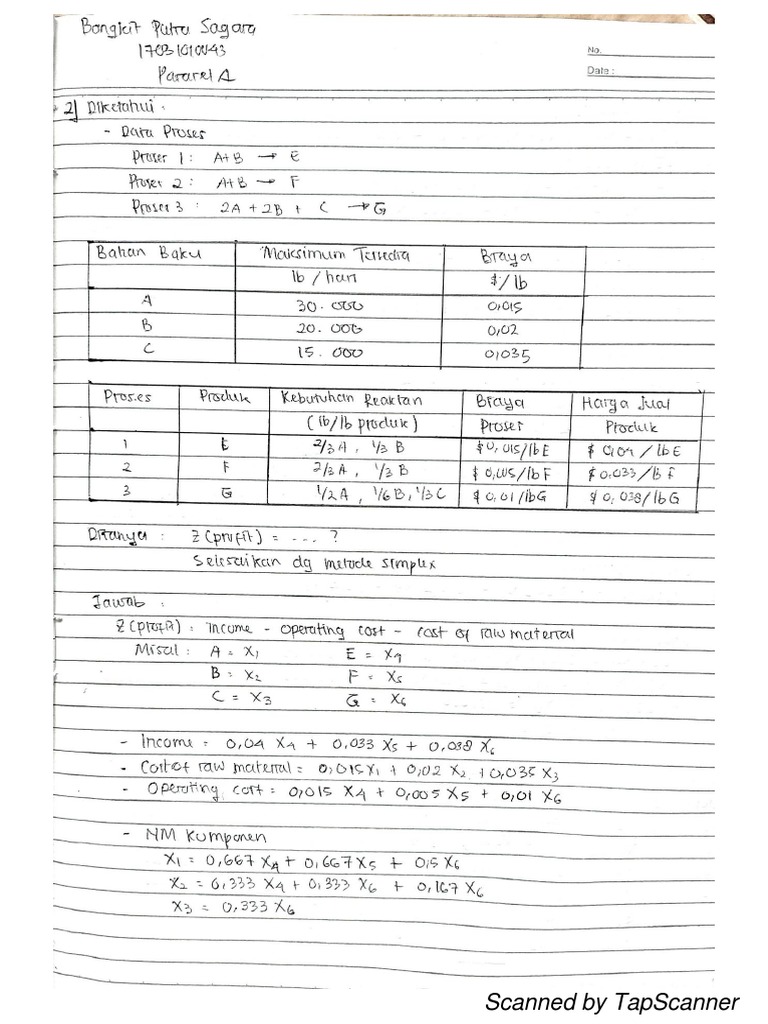 Bangkit Putra Sagara
No.
17031010043
Date :
Pararel A
2] Diketahui :
- Data Proses
Proses 1 : A+B → E
Proses 2 : A+B → F
Proses 3 : 2A + 2B + C → G
Bahan Baku Maksimum Tersedia Biaya
lb / hari $/lb
A 30.000 0,015
B 20.000 0,02
C 15.000 0,035
Proses Produk Kebutuhan Reaktan Biaya Harga Jual
(lb/lb produk) Proses Produk
1 E 2/3 A, 1/3 B $0,015/lb E $ 0,04 / lb E
2 F 2/3 A, 1/3 B $0,005/lb F $0.033/lb F
3 G 1/2 A, 1/6 B, 1/3 C $0,01/lb G $0.038/lb G
Ditanya : Z (profit) = .... ?
Selesaikan dg metode simplex
Jawab :
Z (profit) : income - operating cost - cost of raw material
Misal : A = X1 E = X4
B = X2 F = X5
C = X3 G = X6
- Income = 0,04 X4 + 0,033 X5 + 0,038 X6
- Cost of raw material = 0,015X1 + 0,02 X2 + 0,035 X3
- Operating cost = 0,015 X4 + 0,005 X5 + 0,01 X6
- NM Komponen
X1 = 0,667 X4 + 0,667 X5 + 0,5 X6
X2 = 0,333 X4 + 0,333 X6 + 0,167 X6
X3 = 0,333 X6
Scanned by TapScanner